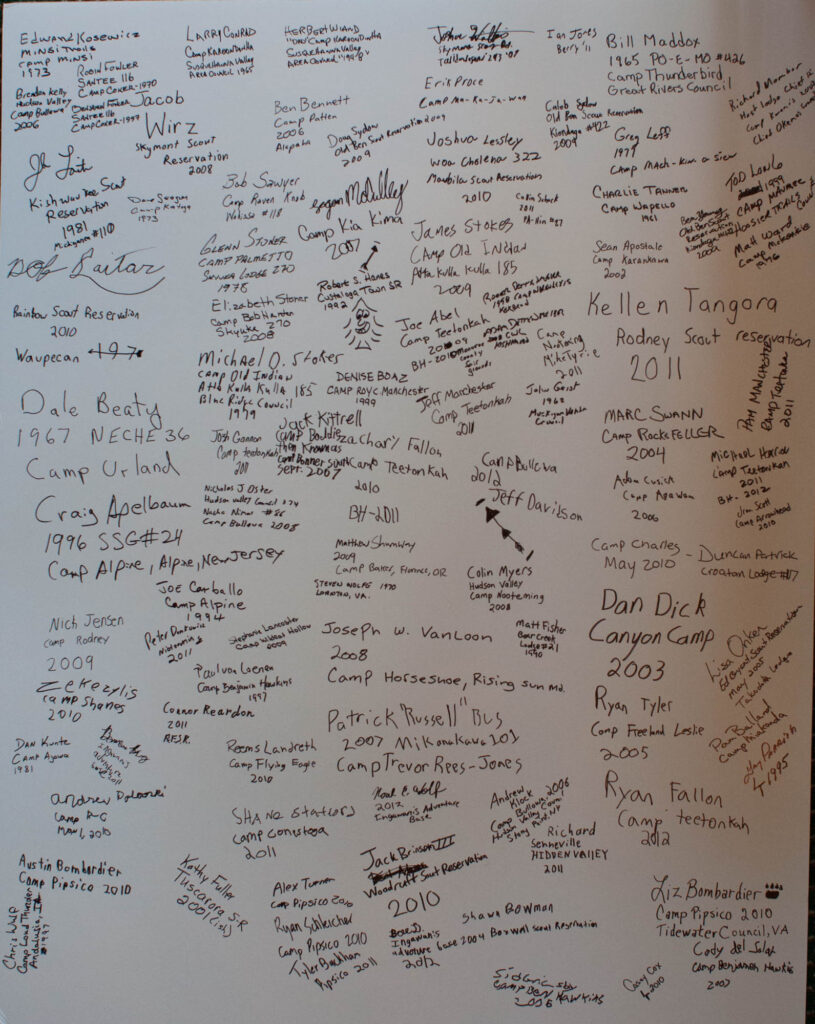 Edward Kosewicz
Minsi Trails
Camp Minsi
1973
Larry Conrad
Camp Karoondinha
Susquehanna Valley
Area Council 1965
Herbert Wiand
Camp Karoondinha
Susquehanna Valley
Area Council
Skymont Scout Res.
Ian Jones
Berry '11
Bill Maddox
1965 PO-E-MO #426
Camp Thunderbird
Great Rivers Council
Robin Fowler
Santee 116
Camp Coker-1970
Brendan Kelly
Hudson Valley
Camp Bullowa
2006
Deborah Fowler
Santee 116
Camp Coker-1997
Jacob
Wirz
Skymont Scout
Reservation
2008
Ben Bennett
Camp Patten
2006
Alapaha
Doug Sydow
Old Ben Scout Reservation
2009
Erik Proce
Camp Ma-Ka-Ja-Wan
2009
Joshua Lessley
Woa Cholena 322
Maubila Scout Reservations
2010
Caleb Sydow
Old Ben Scout Reservation
Kiondaga #422
2009
Greg Leff
1977
Camp Mach-Kin-O-Siew
Richard Mambar
Kishwaukee Scout
Reservation
1981
Dave Swogger
1973
Bob Sawyer
Camp Raven Knob
Wahissa #118
Camp Kia Kima
2007
Colin Siebert
2011
Charlie Tanner
Camp Wapello
1961
Tod Long
1999
Camp Maumee
Hoosier Trails
Old Ben Scout
Reservation
Matt Ward
Rainbow Scout Reservation
2010
Waupecan 1971
Glenn Storer
Camp Palmetto
Skyuka Lodge 270
1978
Elizabeth Storer
Camp Bob Hardin
Skyuka 270
2008
Robert S. Hanes
Custaloga Town SR
1992
James Stokes
Camp Old Indian
Atta Kulla Kulla 185
2009
Sean Apostale
Camp Karankawa
2002
Kellen Tangora
Rodney Scout reservation
2011
Joe Abel
Camp Teetonkah
2009
BH-2010
Camp
Nooteming
Mike Tyrie
2011
Michael O. Stokes
Camp Old Indian
Atta Kulla Kulla 185
Blue Ridge Council
1979
Denise Boaz
Camp Roy C. Manchester
1999
Jeff Manchester
Camp Teetonkah
2011
John Geist
1962
Council
Pam Manchester
Camp Teetonkah
2011
Dale Beaty
1967 Neche 36
Camp Urland
Josh Gannon
Camp teetonkah
2011
Jack Kittrell
Camp Boddie
then Known as
Camp Bonner South
Sept. 2007
Zachary Fallon
Camp Teetonkah
2010
BH-2011
Marc Swann
Camp Rockefeller
2004
Michael Harrod
Camp Teetonkah
2011
BH-2012
Jim Scott
Camp Arrowhead
2010
Adam Cusick
Camp Agawam
2006
Craig Apelbaum
1996 SSG#24
Camp Alpine, Alpine, New Jersey
Nicholas J Oster
Hudson Valley Council 374
Nacha Nimat #86
Camp Bullowa 2008
Camp Bullowa
2012
Jeff Davidson
Matthew Shumway
2009
Camp Baker, Florence, OR
Steven Wolfe 1970
Lorton, VA.
Colin Myers
Hudson Valley
Camp Nooteming
2008
Camp Charles - Duncan Patrick
May 2010 Croatan Lodge #117
Joe Carballo
Camp Alpine
1994
Nich Jensen
Camp Rodney
2009
2011
Stephanie Lancaster
Camp Wilbert Hollow
2009
Joseph W. VanLoon
2008
Camp Horseshoe, Rising Sun Md.
Matt Fisher
Bear Creek
Lodge #21
1990
Dan Dick
Canyon Camp
2003
Lisa Onken
Ed Bryant Scout Reservation
May 2005
Takoda Lodge
Zeke Zylis
Camp Shands
2010
Paul von Loenen
Camp Benjamin Hawkins
1997
Connor Reardon
2011
Patrick "Russell" Bus
2007 Mikanakawa 101
Camp Trevor Rees-Jones
Ryan Tyler
Camp Freeland Leslie
2005
Pam Ballard
1995
Dan Kunte
Camp Agawa
1981
Reems Landreth
Camp Flying Eagle
2010
2010
Shane Stafford
Camp Conestoga
2011
Noah E. Wolf
2012
Ingawanis Adventure
Base
Andrew
Klock
Camp Bullowa, 2006
Hudson Valley Council
Stony Point, NY
Richard
Senneville
Hidden Valley
2011
Ryan Fallon
Camp teetonkah
2012
Austin Bombardier
Camp Pipsico 2010
Chris Wulp
Camp Loud Thunder
Andalusia, IL
1997
Kathy Fuller
Tuscarora S.R
2001 (ish)
Alex Turner
Camp Pipsico 2010
Ryan Schleicher
Camp Pipsico 2010
Tyler Buckhan
Pipsico 2011
Jack Brinson III
Woodruff Scout Reservation
2010
Ingawanis
Adventure base 2004
2012
Shawn Bowman
Boxwell Scout Reservation
Camp Ben Hawkins
2006
Casey Cox
2010
Liz Bombardier
Camp Pipsico 2010
Tidewater Council, VA
Cody del Solar
Camp Benjamin Hawkins
2007